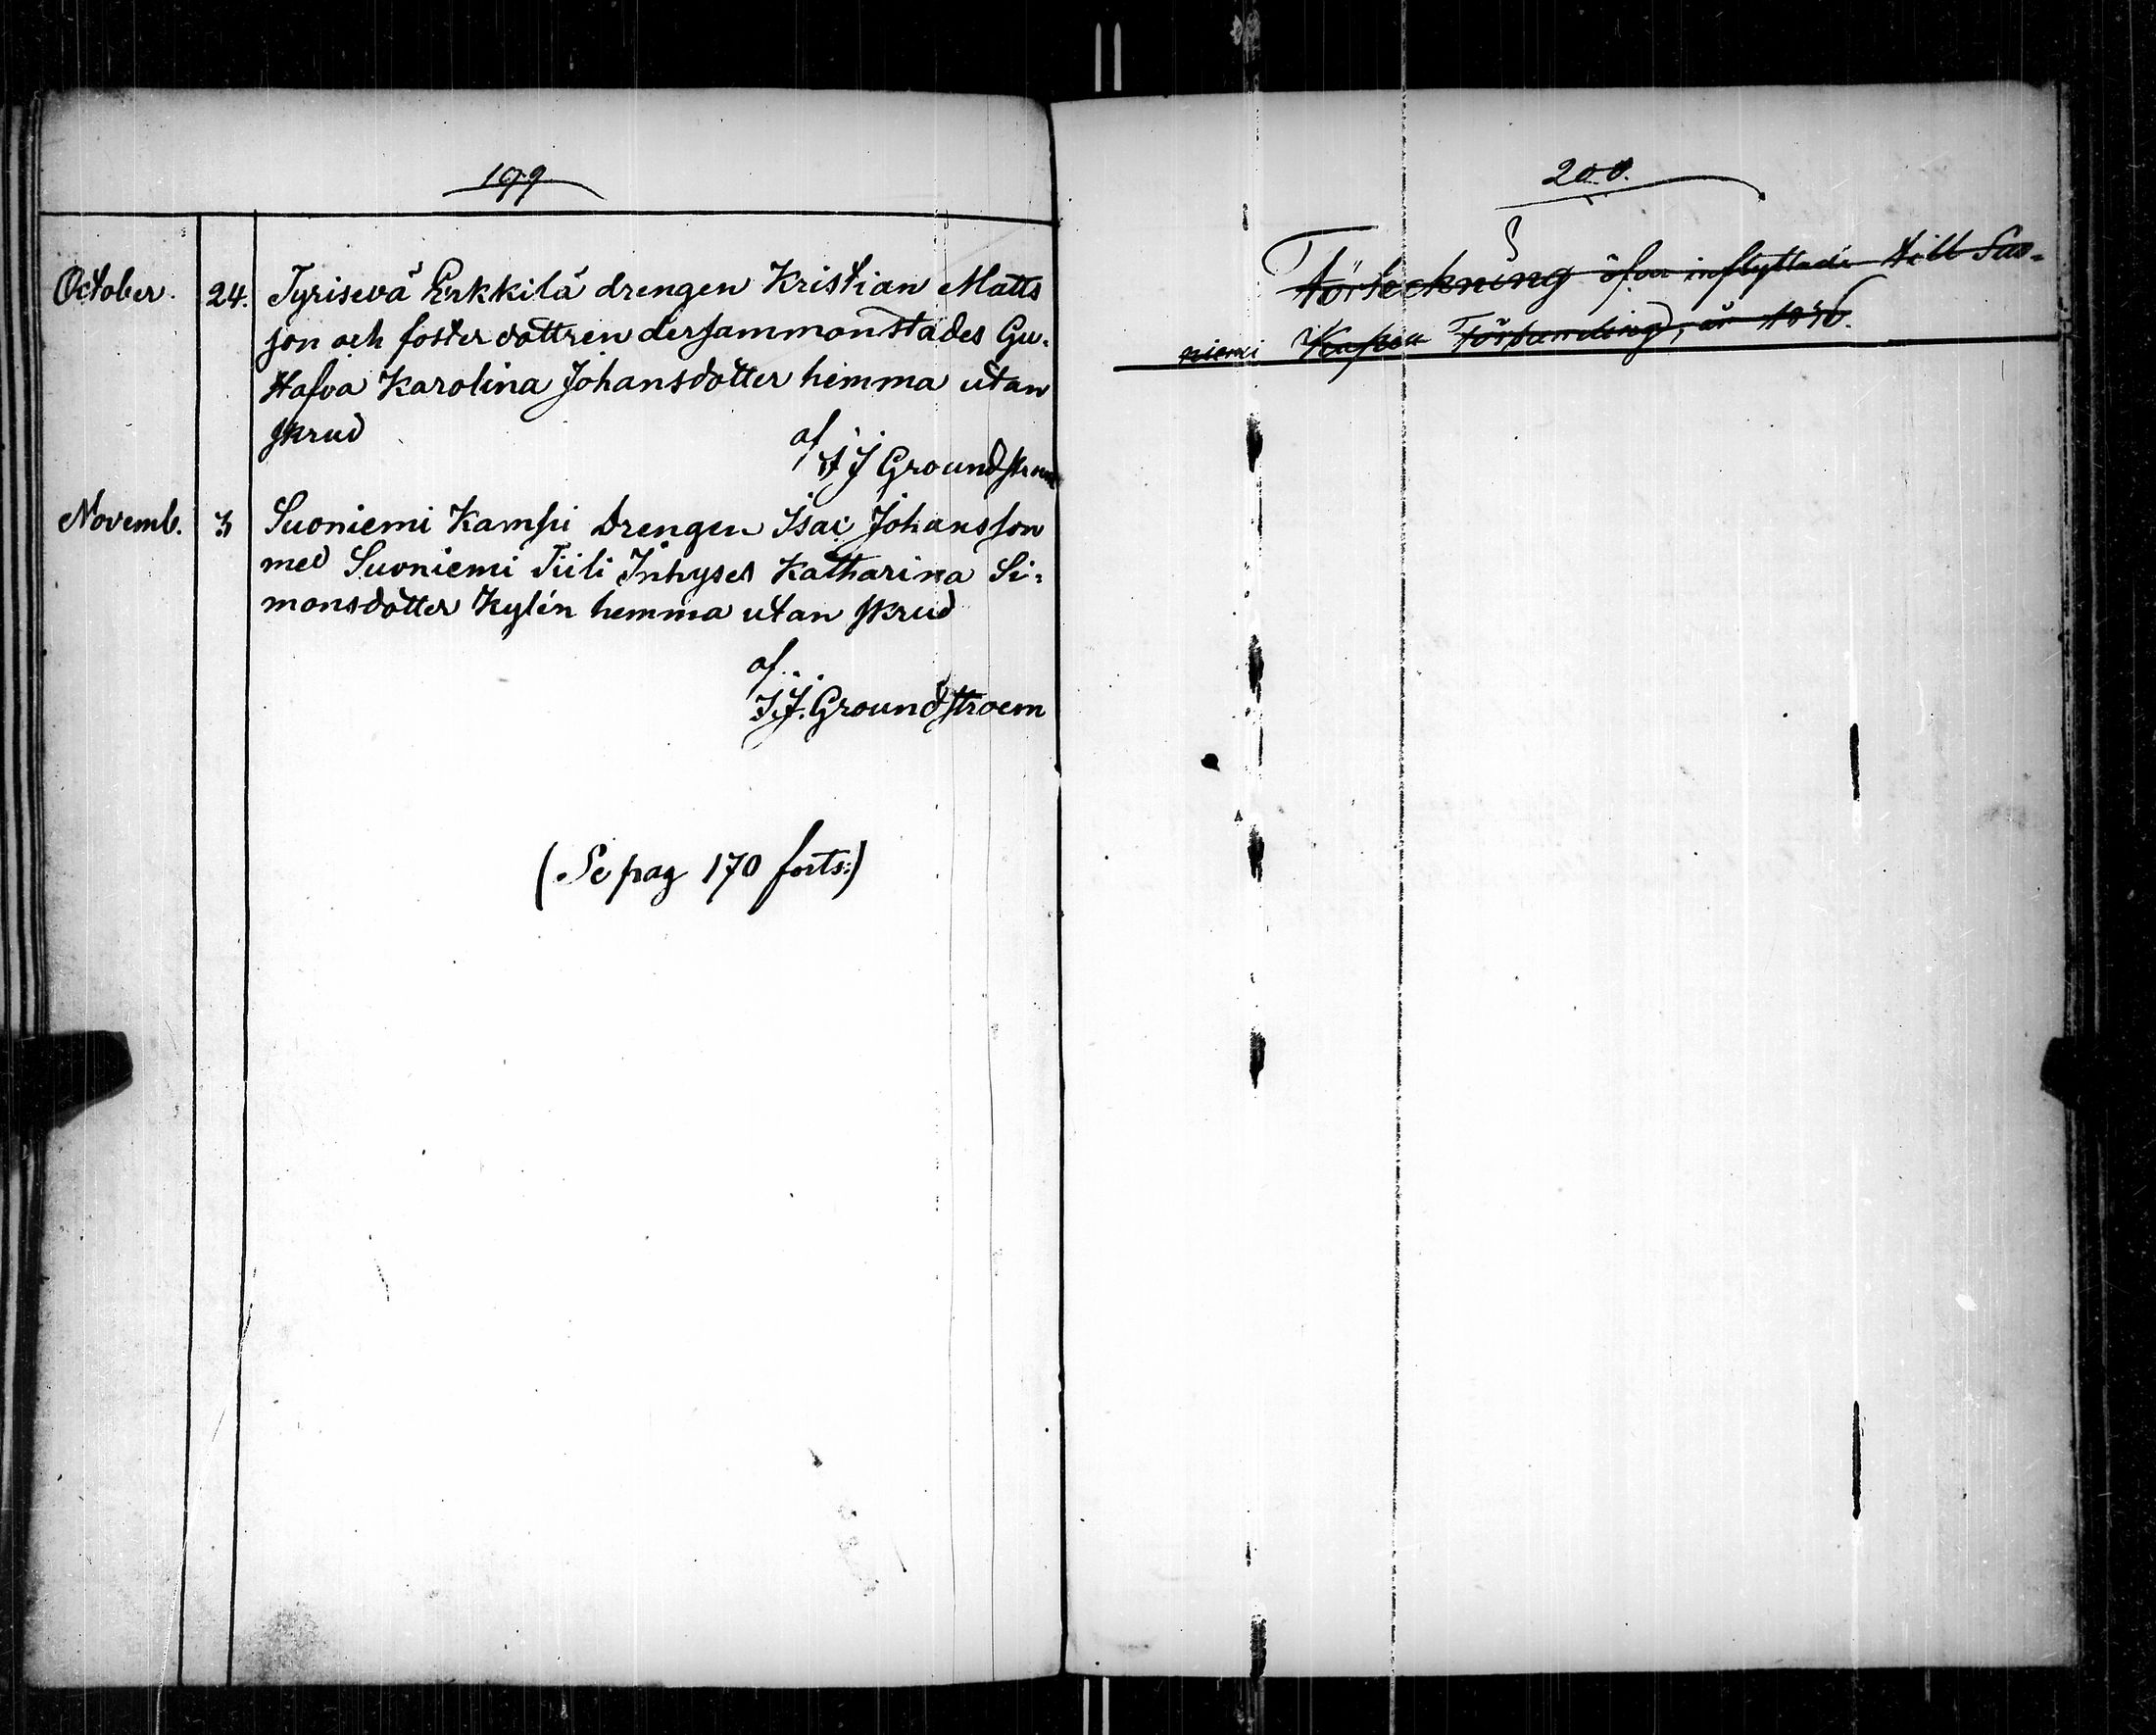 199
October. 24. Tyrisevä Erkkilä drengen Kristian Matts
son och foster dottren dersammonstädes Gu-
stafva Karolina Johansdotter hemma utan
skrud
af
J J Groundstroem
Novemb. 3 Suoniemi Kampi Drengen Isac Johansson
med Suoniemi Tiili Inhyses Katharina Si-
monsdotter Kylén hemma utan skrud
af
J.J. Groundstroem
(Se pag 170 forts:)
200.
Förteckning öfver inflyttade till Suo-
niemi Kapell Församling, år